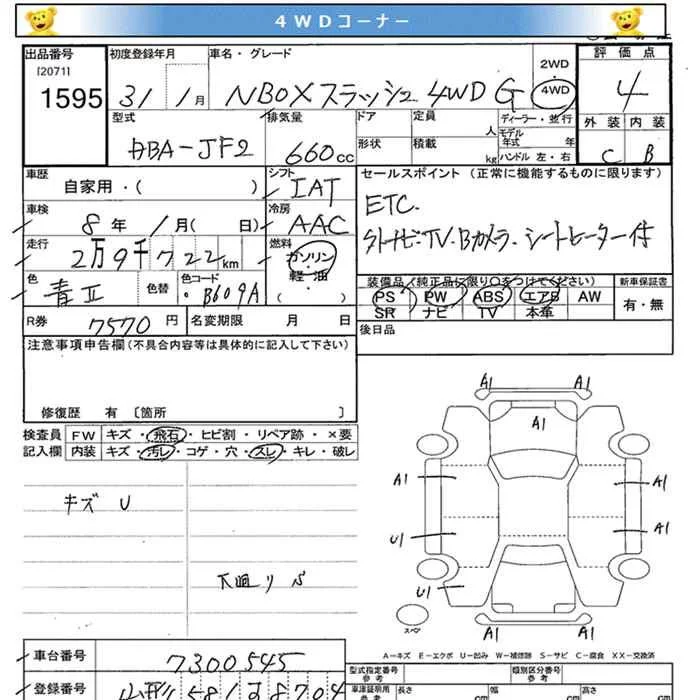 4WDコーナー
出品番号
[2071]
1595
初度登録年月
31 / 1月
車名・グレード
NBOXスラッシュ 4WD G
2WD
・
4WD
評価点
4
外装 内装
C B
型式
DBA-JF2
排気量
660cc
ドア
形状
定員 人
積載 kg
ディーラー・並行
モデル年式 年
ハンドル 左・右
車歴
自家用・( )
シフト
IAT
車検
8年 1月( 日)
冷房
AAC
走行
2万9千722km
燃料
ガソリン
軽・油
( )
色
青II
色替
色コード
・B609A
セールスポイント(正常に機能するものに限ります)
ETC.
外ナビ・TV.Bカメラ.シートヒーター付
装備品(純正品に限り○をつけてください)
PS PW ABS エアB AW
SR ナビ TV 本革
新車保証書
有・無
R券 7570円
名変期限 月 日
後日品
注意事項申告欄(不具合内容等は具体的に記入して下さい)
修復歴 有 〔箇所 〕
検査員
記入欄
FW キズ・飛石・ヒビ割・リペア跡・×要
内装 キズ・汚レ・コゲ・穴・スレ・キレ・破レ
キズ U
下廻りS
A1 A1
A1
A1 A1
U1 A1
U1
A1 A1
スペア
A－キズ E－エクボ U－凹み W－補修跡 S－サビ C－腐食 XX－交換済
車台番号
7300545
登録番号
山形 581 8704
型式指定番号
参考
類別区分番号
参考
車庫証明用
参考
長さ cm
幅 cm
高さ cm